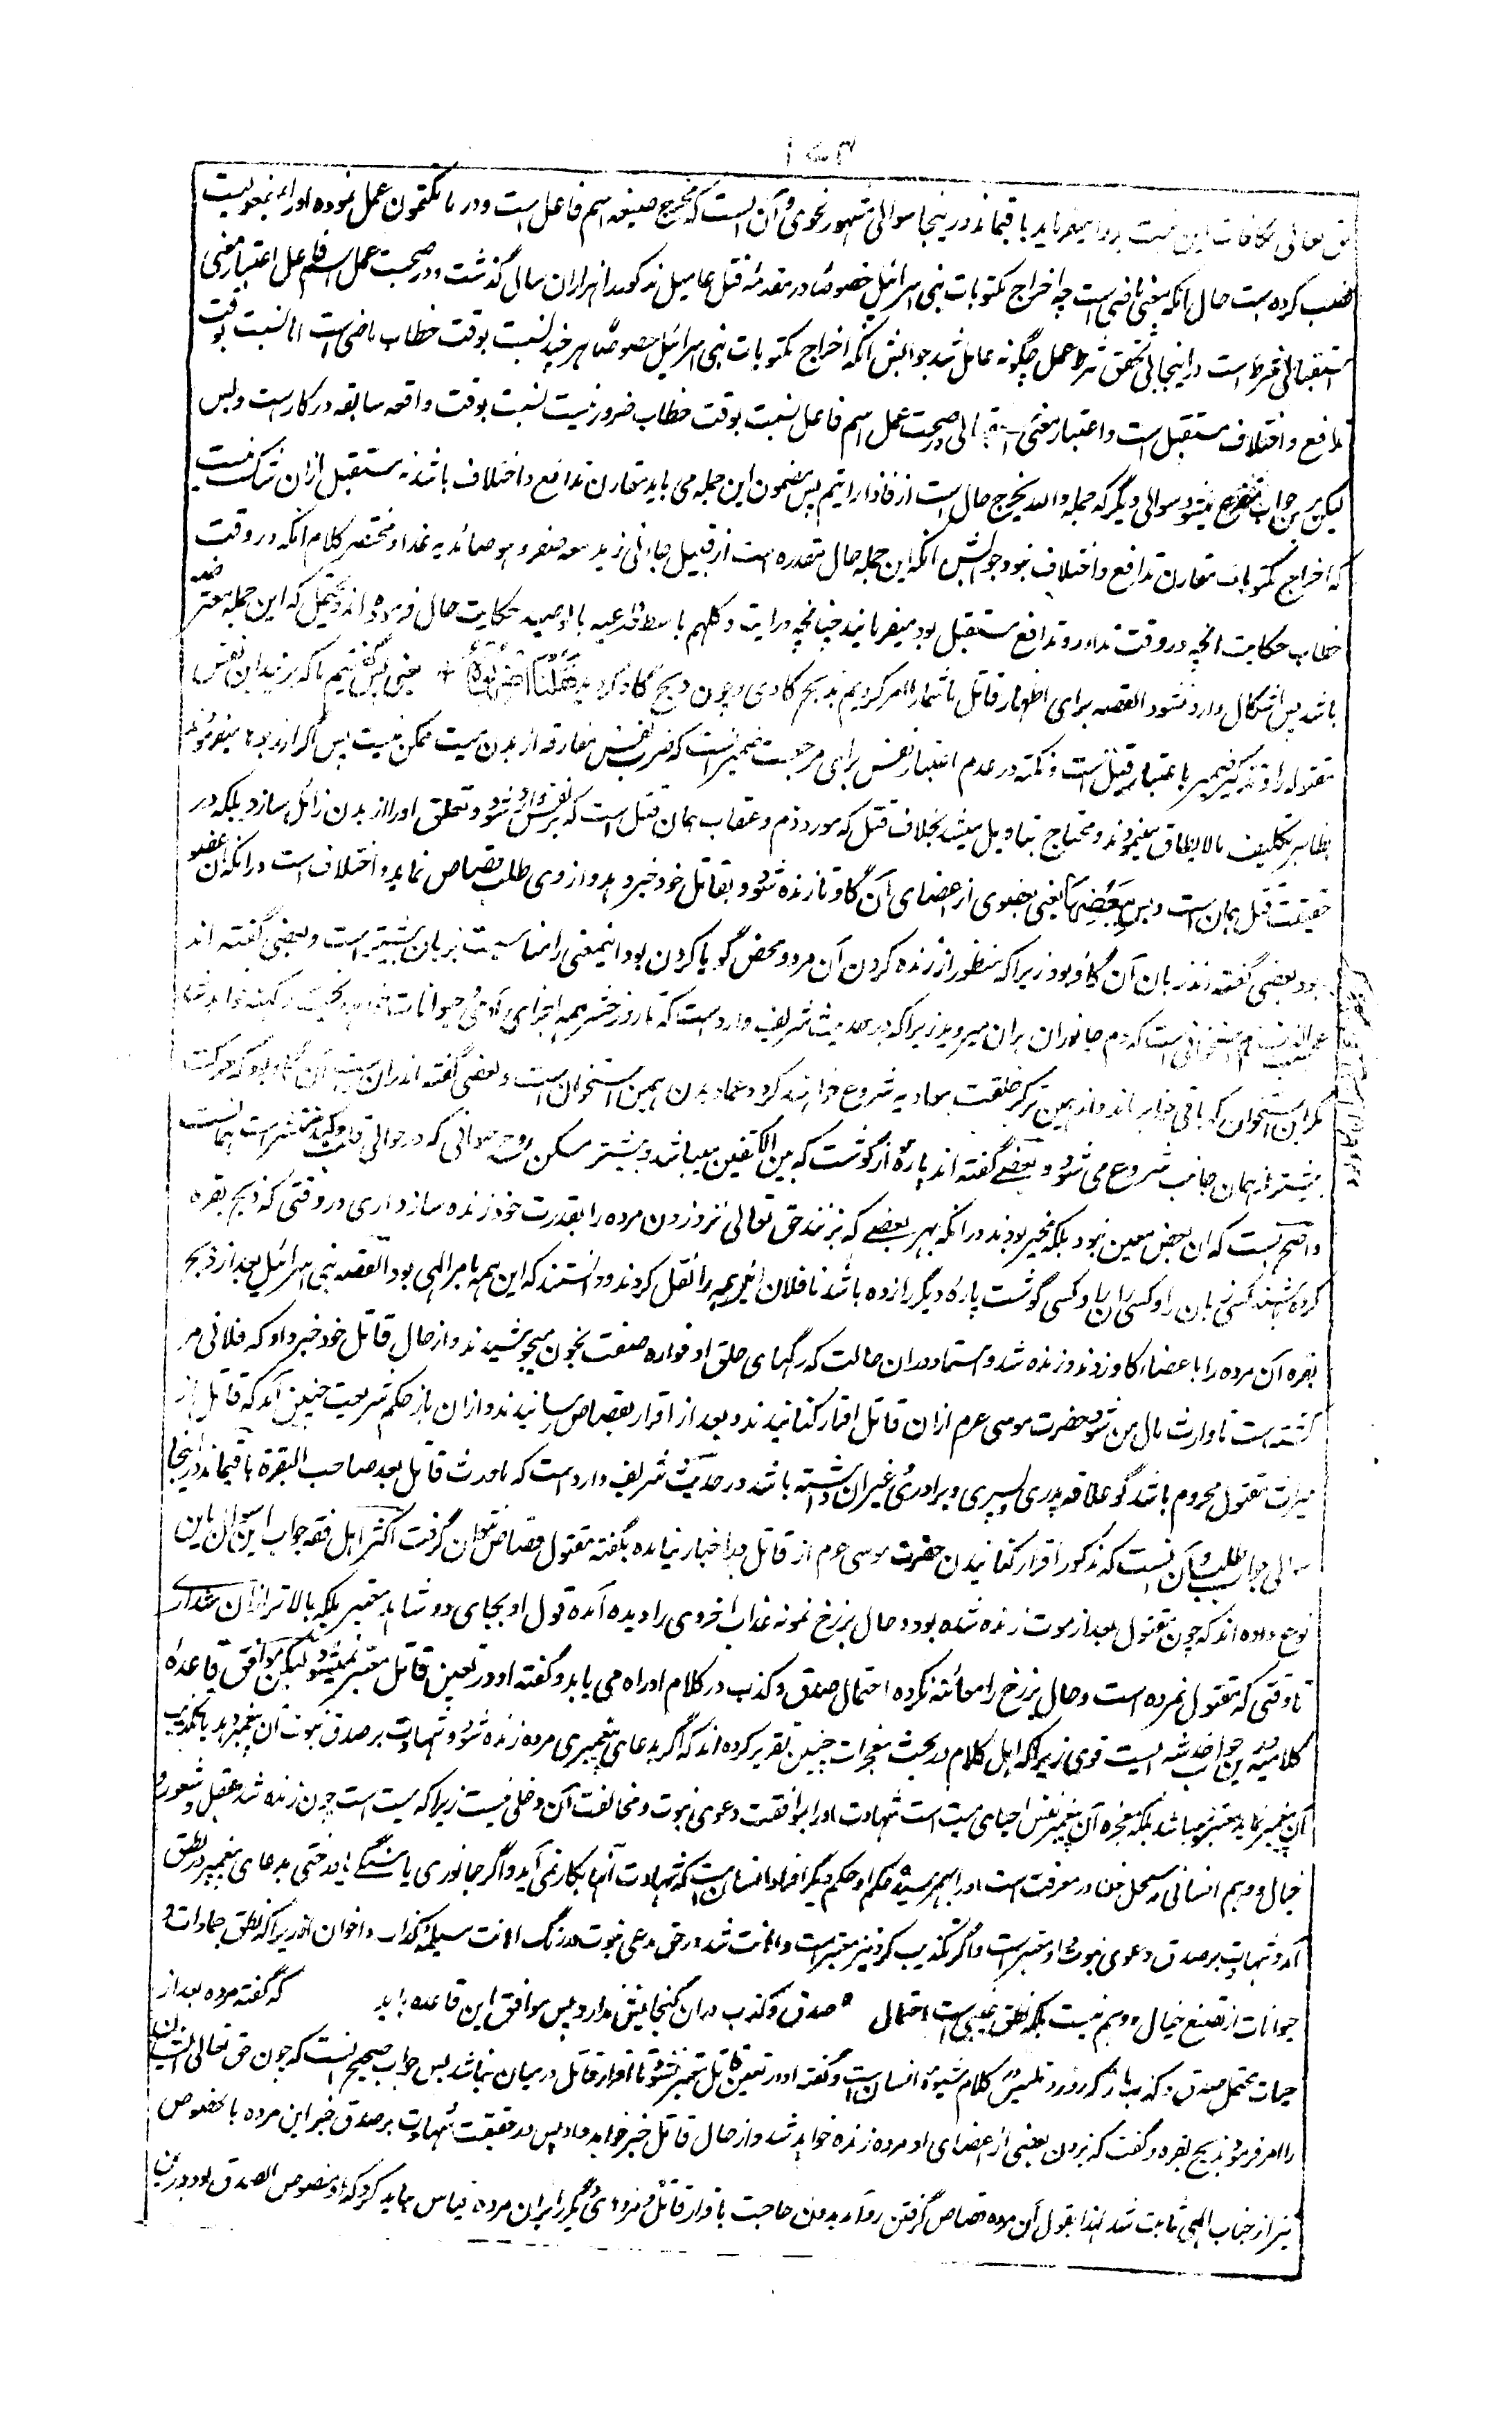 حق تعالی مکافات این نیت بد را میفرماید باقیماند در ینجا سوالی مشهور نحوی و آن اینست که مخرج صیغه اسم فاعل است و در ما تکتمون عمل نموده او را به مفعولیت
نصب کرده است حال آنکه بمعنی ماضی است چه اخراج مکتوبات بنی اسرائیل خصوصاً در مقدمه قتل عامیل مذکور هزاران سال گذشت و در صحت عمل اسم فاعل اعتبار معنی
استقبالی شرط است در اینجا بی تحقق شرط عمل چگونه عامل شد جوابش آنکه اخراج مکتوبات بنی اسرائیل خصوصاً هر چند نسبت بوقت خطاب ماضی است اما نسبت بوقت
تدافع و اختلاف مستقبل است و اعتبار معنی استقبالی در صحت عمل اسم فاعل نسبت بوقت خطاب ضرور نیست نسبت بوقت واقعه سابقه در کار است و بس
لیکن برین جواب متفرع میشود سوالی دیگر که جمله و الله مخرج حال است از فادارأتم پس مضمون این جمله می باید مقارن تدافع و اختلاف باشد نه مستقبل ازان شک نیست
که اخراج مکتوبات مقارن تدافع و اختلاف نبود جوابش آنکه این جمله حال مقدره است از قبیل جاءنی زید معه صقر و هو صائد به غدا و مختصر کلام آنکه در وقت
خطاب حکایت آنچه در وقت تدارو و تدافع مستقبل بود میفرمانید چنانچه در آیت و کلبهم باسط ذراعیه بالوصید حکایت حال فرموده اند و یحتمل که این جمله معترضه
باشد پس اشکال وارد نشود القصه برای اظهار قاتل باشما را امر کردیم بذبح گاوی و چون ذبح گاو کردید فَقُلْنَا اضْرِبُوهُ + یعنی پس گفتیم ما که بزنید این نفس
مقتوله را و تذکیر ضمیر باعتبار قتیل است و نکته در عدم اعتبار نفس برای مرجعیت ضمیر آنست که ضرب نفس مفارقه از بدن میت ممکن نیست پس اگر اضربوها میفرمودند
بظاهر تکلیف مالایطاق میفهمیدند و محتاج بتاویل میشد بخلاف قتل که مورد ذم و عقاب همان قتل است که بر نفس وارد شود و تعلق او را از بدن زائل سازد بلکه در
حقیقت قتل همان است و بس بِبَعْضِهَا یعنی بعضوی از اعضای آن گاو تا زنده شود و بقاتل خود خبر دهد و از وی طلب قصاص نماید و اختلاف است در آنکه آن عضو
بود بعضی گفته اند زبان آن گاو بود زیرا که منظور از زنده کردن آن مرده محض گویا کردن بود اینمعنی را مناسبت بزبان بیشتر است و بعضی گفته اند
عجب الذنب نام استخوانی است که دم جانوران بران میروید زیرا که در حدیث شریف وارد است که تا روز حشر همه اجزای آدمی و حیوانات خواهد ریخت و کهنه خواهد شد
مگر این استخوان که باقی خواهد ماند و از همین ترکیب خلقت معادیه شروع خواهند کرد و عماد بدن همین استخوان است و بعضی گفته اند ران راست آن گاو بود که حرکت
بیشتر از همان جانب شروع می شود و بعضے گفته اند پارهٔ از گوشت که بین الکتفین میباشد و بیشتر مسکن روح حیوانی که در حوالی قلب و کبد منتشر است همانست
و اصح اینست که آن بعض معین نبود بلکه مخیر بودند در آنکه بهر بعضے که بزنند حق تعالی نزد زدن مرده را بقدرت خود زنده سازد آری در وقتی که ذبح بقره
کرده باشند کسی زبان را و کسی ران را و کسی گوشت پارهٔ دیگر را زده باشد ناقلان این همه را نقل کردند و دانستند که این همه بامر الهی بود القصه بنی اسرائیل بعد از ذبح
بقره آن مرده را باعضاء گاو زدند و زنده شد و استاد دران حالت که رگهای حلق او فواره صفت بخون میجوشیدند و از حال قاتل خود خبر داد که فلانی مر
کشته است تا وارث مال من شود حضرت موسی عرم ازان قاتل اقرار کنانیدند و بعد از اقرار بقصاص رسانیدند و ازان باز حکم شریعت چنین آمد که قاتل از
میراث مقتول محروم باشد گو علاقه پدری و پسری و برادری و غیر آن داشته باشد در حدیث شریف وارد است که ما ورث قاتل بعد صاحب البقرة باقیماند در اینجا
سوالی جواب طلب و آن اینست که مذکور اقرار کنانیدن حضرت موسی عرم از قاتل در اخبار نیامده بگفته مقتول قصاص نتوان گرفت اکثر اهل فقه جواب این سوال باین
نوع داده اند که چون مقتول بعد از موت زنده شده بود و حال برزخ نمونه عذاب اخروی را دیده آمده قول او بجای دو شاهد معتبر بلکه بالاتر ازان شد آری
تا وقتی که مقتول نمرده است و حال برزخ را معائنه نکرده احتمال صدق و کذب در کلام او راه می یابد و گفته او در تعیین قاتل معتبر نمیشود لیکن موافق قاعدهٔ
کلامیه درین جواب خدشه ایست قوی زیرا که اهل کلام در بحث معجزات چنین تقریر کرده اند که اگر بدعای پیغمبری مرده زنده شود و شهادت بر صدق نبوت آن پیغمبر دهد یا تکذیب
آن پیغمبر نماید معتبر نمیباشد بلکه معجزه آن پیغمبر نفس احیای میت است شهادت او را بموافقت دعوی نبوت و مخالفت آن دخلی نیست زیرا که میت است چون زنده شد عقل و شعور و
خیال و وهم انسانی و محل خطا در معرفت است او را بهم رسید حکم او حکم دیگر افراد انسان است که شهادت آنها بکار نمی آید و اگر جانوری یا سنگے یا درختی بدعای پیغمبر در نطق
آمد و شهادت بر صدق دعوی نبوت او معتبر است و اگر تکذیب کرد نیز معتبر است و اهانت شد در حق مدعی نبوت در رنگ اهانت مسیلمه کذاب و اخوان او زیرا که نطق جمادات و
حیوانات از تصنع خیال و وهم نیست بلکه نطق غیبی است احتمال صدق و کذب دران گنجایش ندارد پس موافق این قاعده باید که گفته مرده بعد از
حیات محتمل صدق و کذب باشد که زور و تلبیس در کلام شیوهٔ انسان است و گفته او در تعیین قاتل معتبر نشود تا اقرار قاتل درمیان نباشد پس جواب صحیح اینست که چون حق تعالی ایشان
را امر فرمود بذبح بقره و گفت که بزدن بعضی از اعضای او مرده زنده خواهد شد و از حال قاتل خبر خواهد داد پس در حقیقت شهادت بر صدق خبر این مرده بالخصوص
نیز از جناب الهی ثابت شد لهذا بقول آن مرده قصاص گرفتن روا آمد بدون حاجت باقرار قاتل و مرده های دیگر را بران مرده قیاس نباید کرد که او منصوص الصدق بود و درین